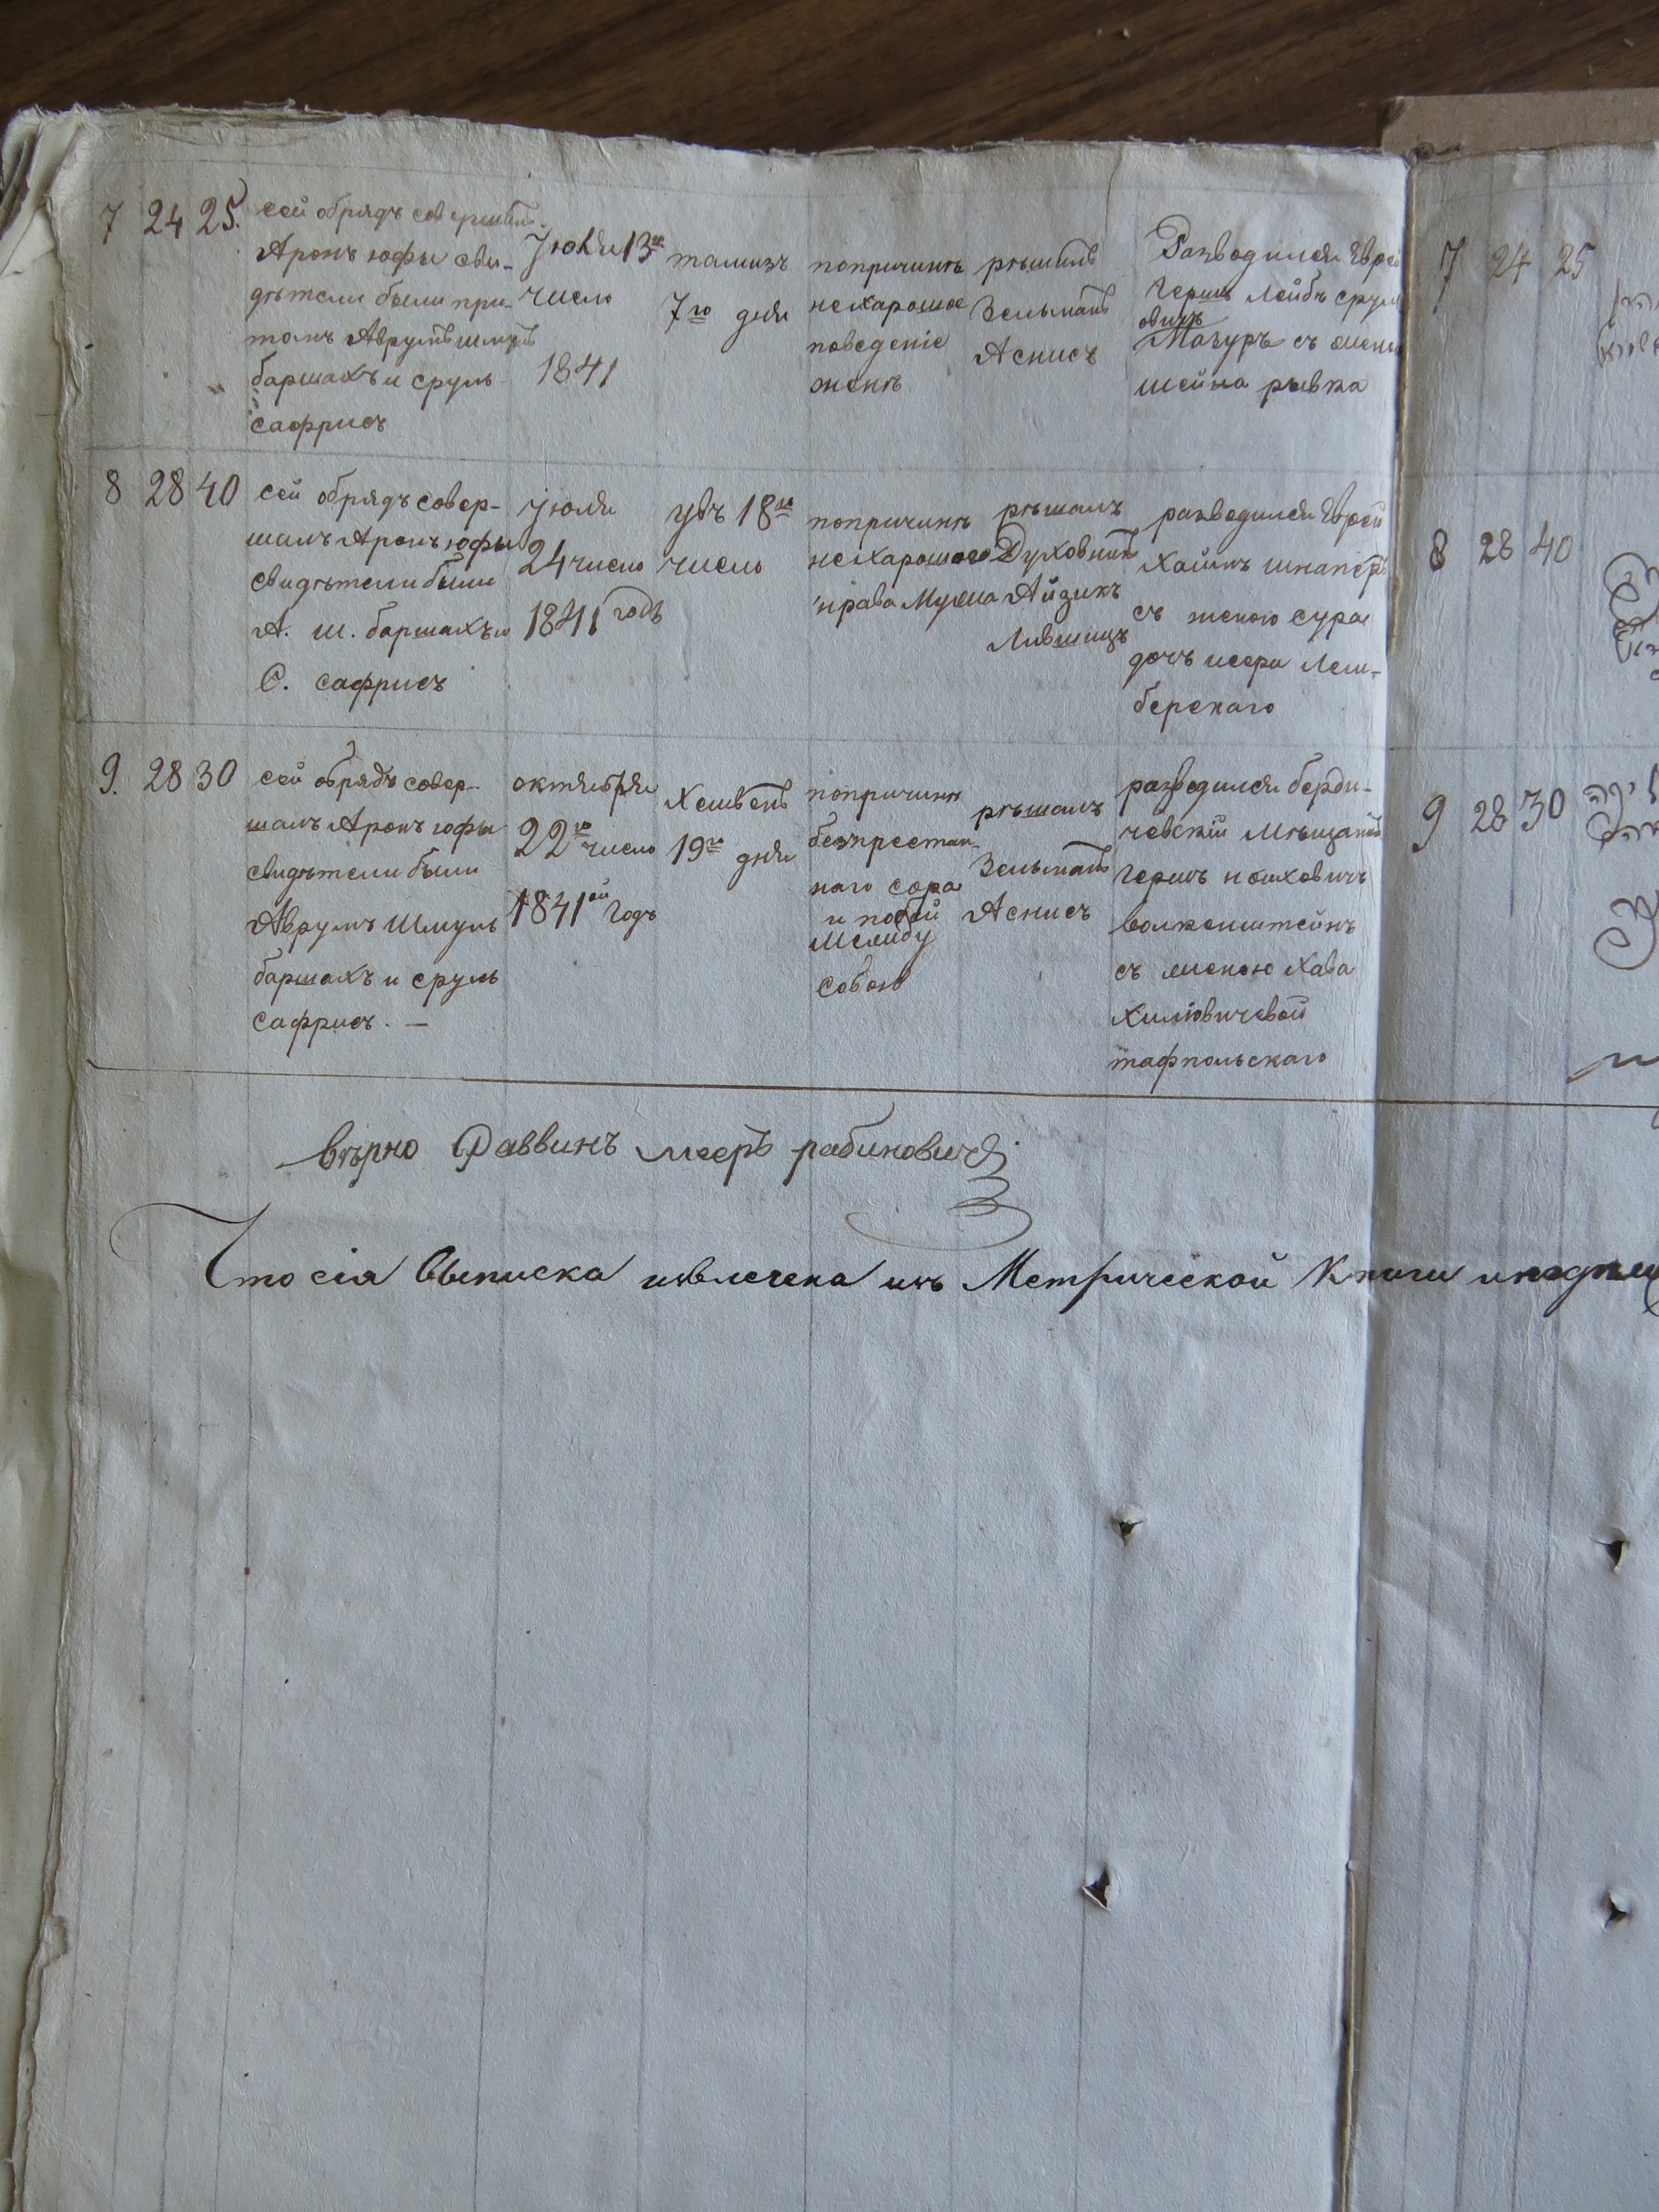 7 24 25.
сей обрядъ совершилъ
Аронъ юфы сви-
дѣтели были при
томъ Аврумъ шмуль
баршахъ и сруль
сафрисъ
Июля 13го
число
1841
тамизъ
7го дня
попричинѣ
нехарошое
поведеніе
женѣ
рѣшилъ
Зельманъ
Аснисъ
Разводился Еврей
Гершъ Лейбъ срул
овичъ
Мазуръ съ женою
шейна рывка
8 28 40
сей обрядъ совер-
шалъ Аронъ юфы
свидѣтели были
А. Ш. баршахъ и
С. сафрисъ
июля
24 число
1841 годъ
увъ 18го
число
попричинѣ
нехарошого
нрава Мужа
рѣшалъ
Духовный
Айзикъ
Лившицъ
разводился Еврей
Хаимъ шнаперъ
съ женою сура
дочъ исера Лем-
берскаго
9. 28 30
сей обрядъ совер-
шалъ Аронъ юфы
свидѣтели были
Аврумъ Шмуль
баршахъ и сруль
сафрисъ. —
октября
22го число
1841ой Годъ
Хешвенъ
19го дня
попричинѣ
безпрестан-
наго сора
и побой
Межъду
собою
рѣшалъ
Зельманъ
Аснисъ
разводился берди-
чевскій Мѣщанинъ
Гершъ ношховичъ
волкенштейнъ
съ женою Хава
Хиліовичевой
тафпольскаго
7 24 25
8 28 40
9 28 30
вѣрно Раввинъ мееръ рабиновичъ
Что сія выписка извлечена изъ Метрической Книги и